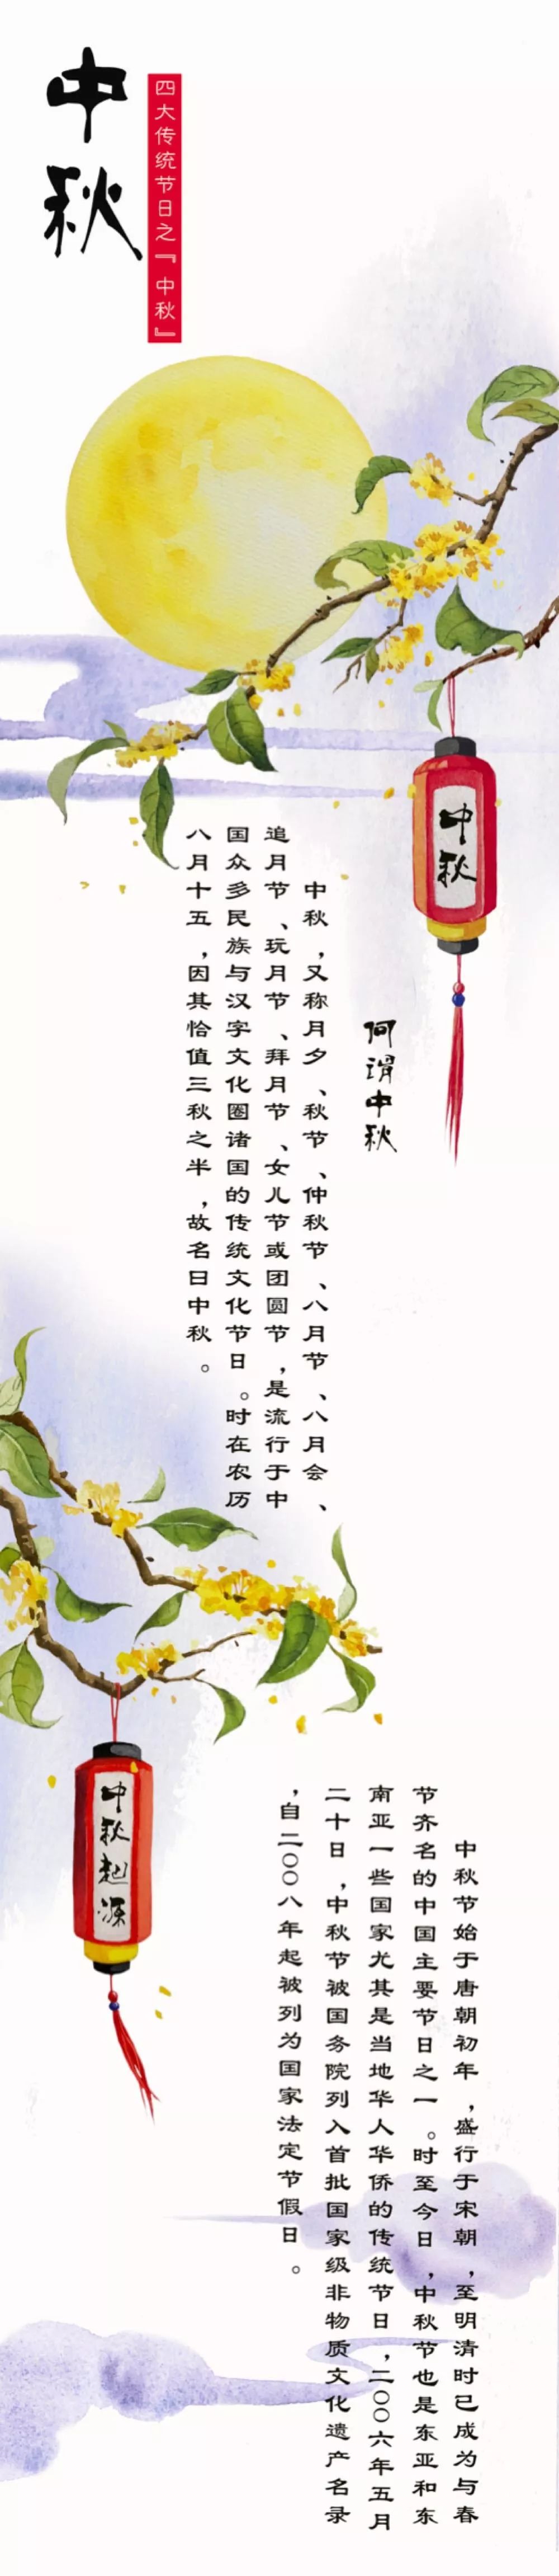 中秋
四大传统节日之『中秋』
中秋
何谓中秋
中秋，又称月夕、秋节、仲秋节、八月节、八月会、
追月节、玩月节、拜月节、女儿节或团圆节，是流行于中
国众多民族与汉字文化圈诸国的传统文化节日。时在农历
八月十五，因其恰值三秋之半，故名日中秋。
中秋起源
中秋节始于唐朝初年，盛行于宋朝，至明清时已成为与春
节齐名的中国主要节日之一。时至今日，中秋节也是东亚和东
南亚一些国家尤其是当地华人华侨的传统节日，二〇〇六年五月
二十日，中秋节被国务院列入首批国家级非物质文化遗产名录
，自二〇〇八年起被列为国家法定节假日。